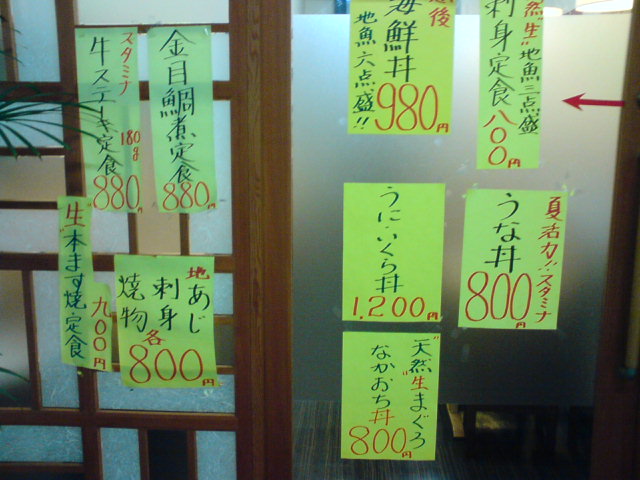 スタミナ
牛ステーキ定食
180g
880円
金目鯛煮定食
880円
生本ます焼定食
九00円
地あじ
刺身
焼物
各
800円
海鮮丼
地魚六点盛!!
980円
"生"地魚三点盛
刺身定食
八00円
うにいくら丼
1,200円
夏活力!!スタミナ
うな丼
800円
"天然"生まぐろ
なかおち丼
800円